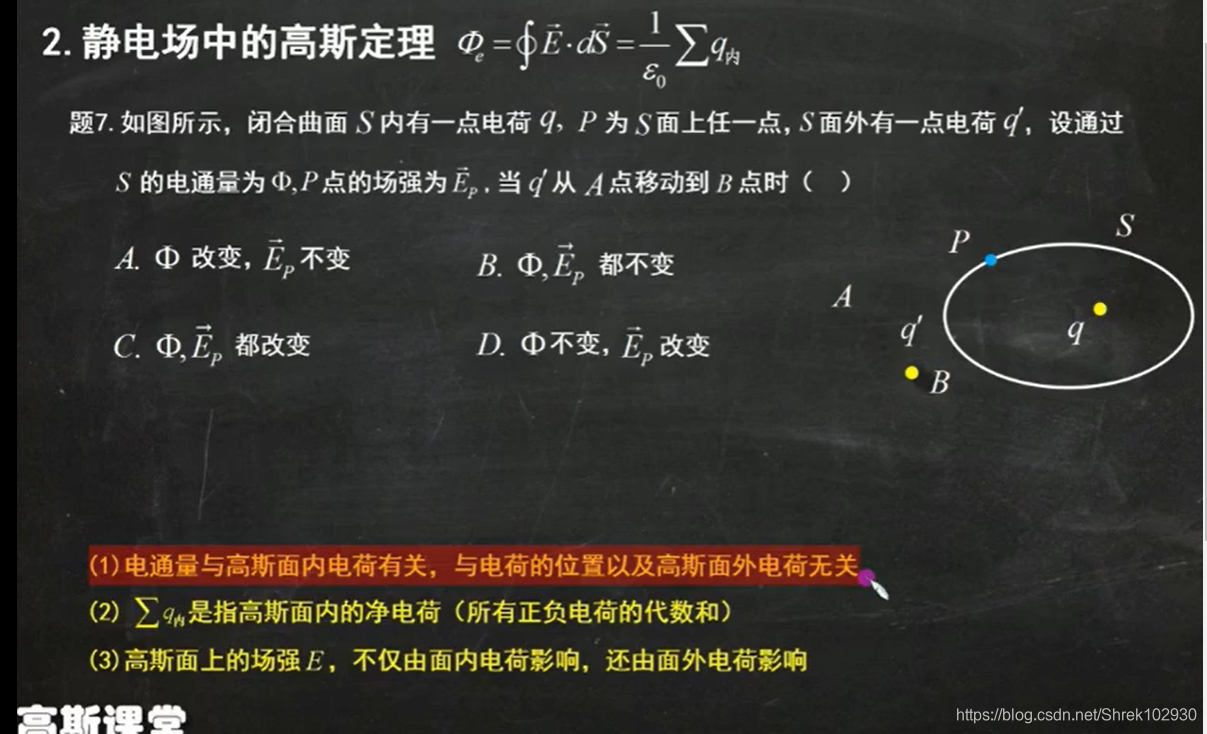 2.静电场中的高斯定理 Φₑ=∮E⃗·dS⃗=1/ε₀ ∑q内
题7.如图所示，闭合曲面 S 内有一点电荷 q，P 为 S 面上任一点，S 面外有一点电荷 q′，设通过
S 的电通量为 Φ,P 点的场强为 E⃗ₚ.当 q′从 A 点移动到 B 点时（ ）
A. Φ 改变，E⃗ₚ 不变
B. Φ,E⃗ₚ 都不变
C. Φ,E⃗ₚ 都改变
D. Φ不变，E⃗ₚ 改变
P
S
A
q′
q
B
(1)电通量与高斯面内电荷有关，与电荷的位置以及高斯面外电荷无关
(2) ∑q内是指高斯面内的净电荷（所有正负电荷的代数和）
(3)高斯面上的场强 E，不仅由面内电荷影响，还由面外电荷影响
高斯课堂
https://blog.csdn.net/Shrek102930